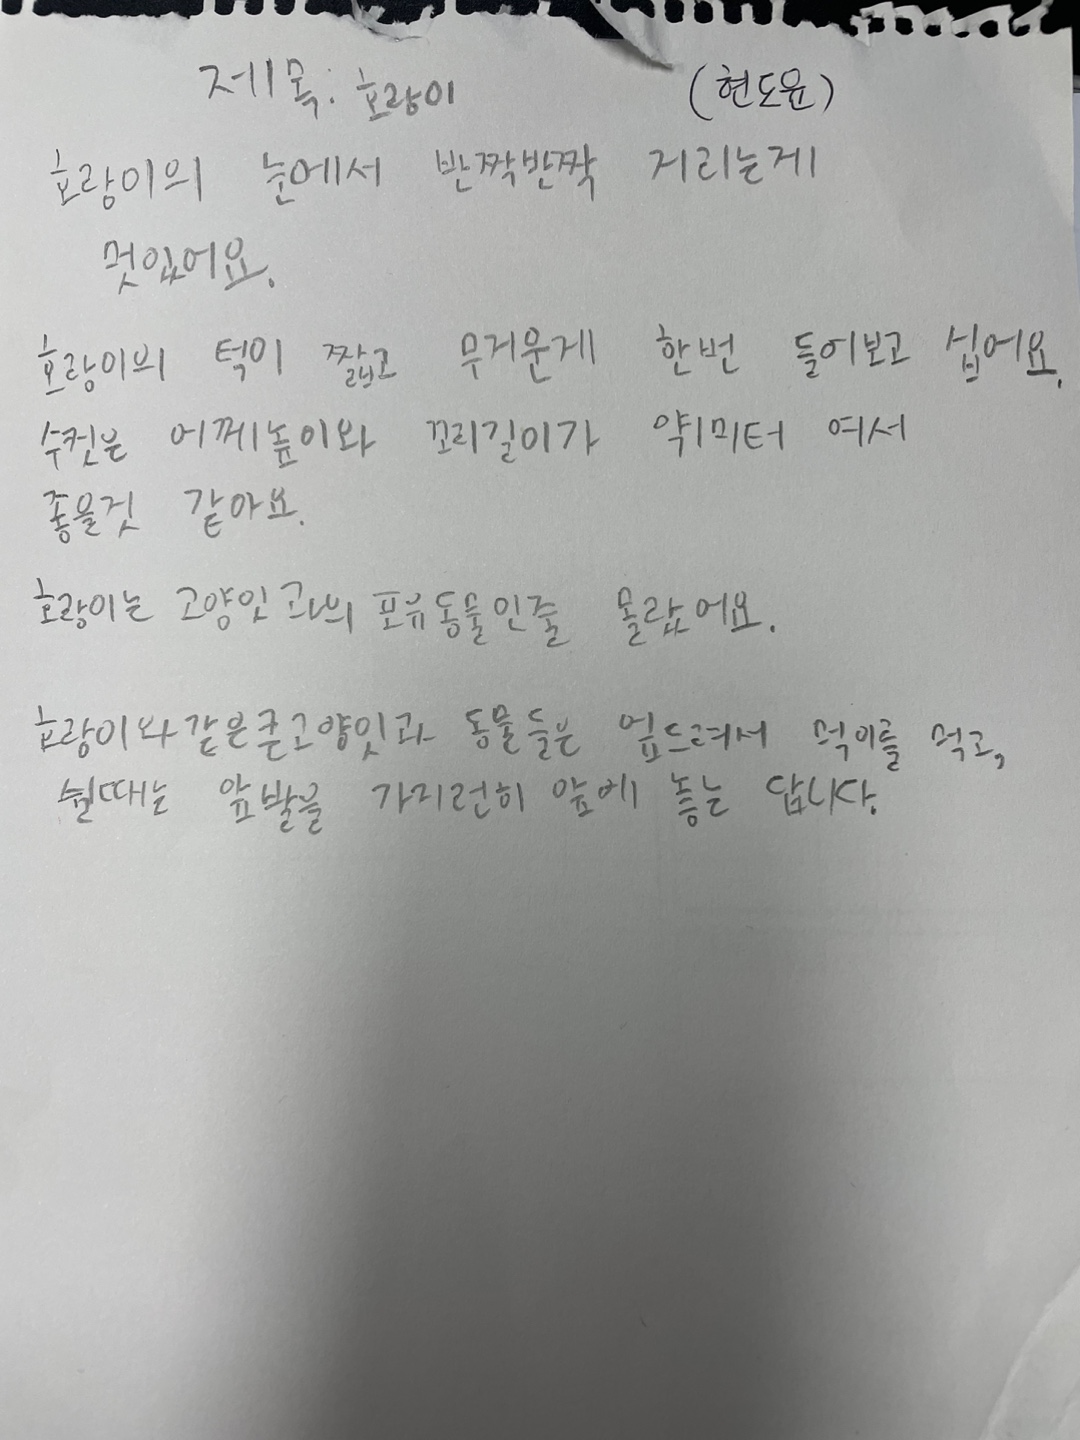 제목:호랑이 (현도윤)
호랑이의 눈에서 반짝반짝 거리는게
멋있어요.
호랑이의 턱이 짧고 무거운게 한번 들어보고 십어요.
수컷은 어께높이와 꼬리길이가 약1미터 여서
좋을것 같아요.
호랑이는 고양잇과의 포유동물인줄 몰랐어요.
호랑이와같은큰고양잇과 동물들은 엎드려서 먹이를 먹고,
쉴때는 앞발을 가지런히 앞에 놓는 답니다.